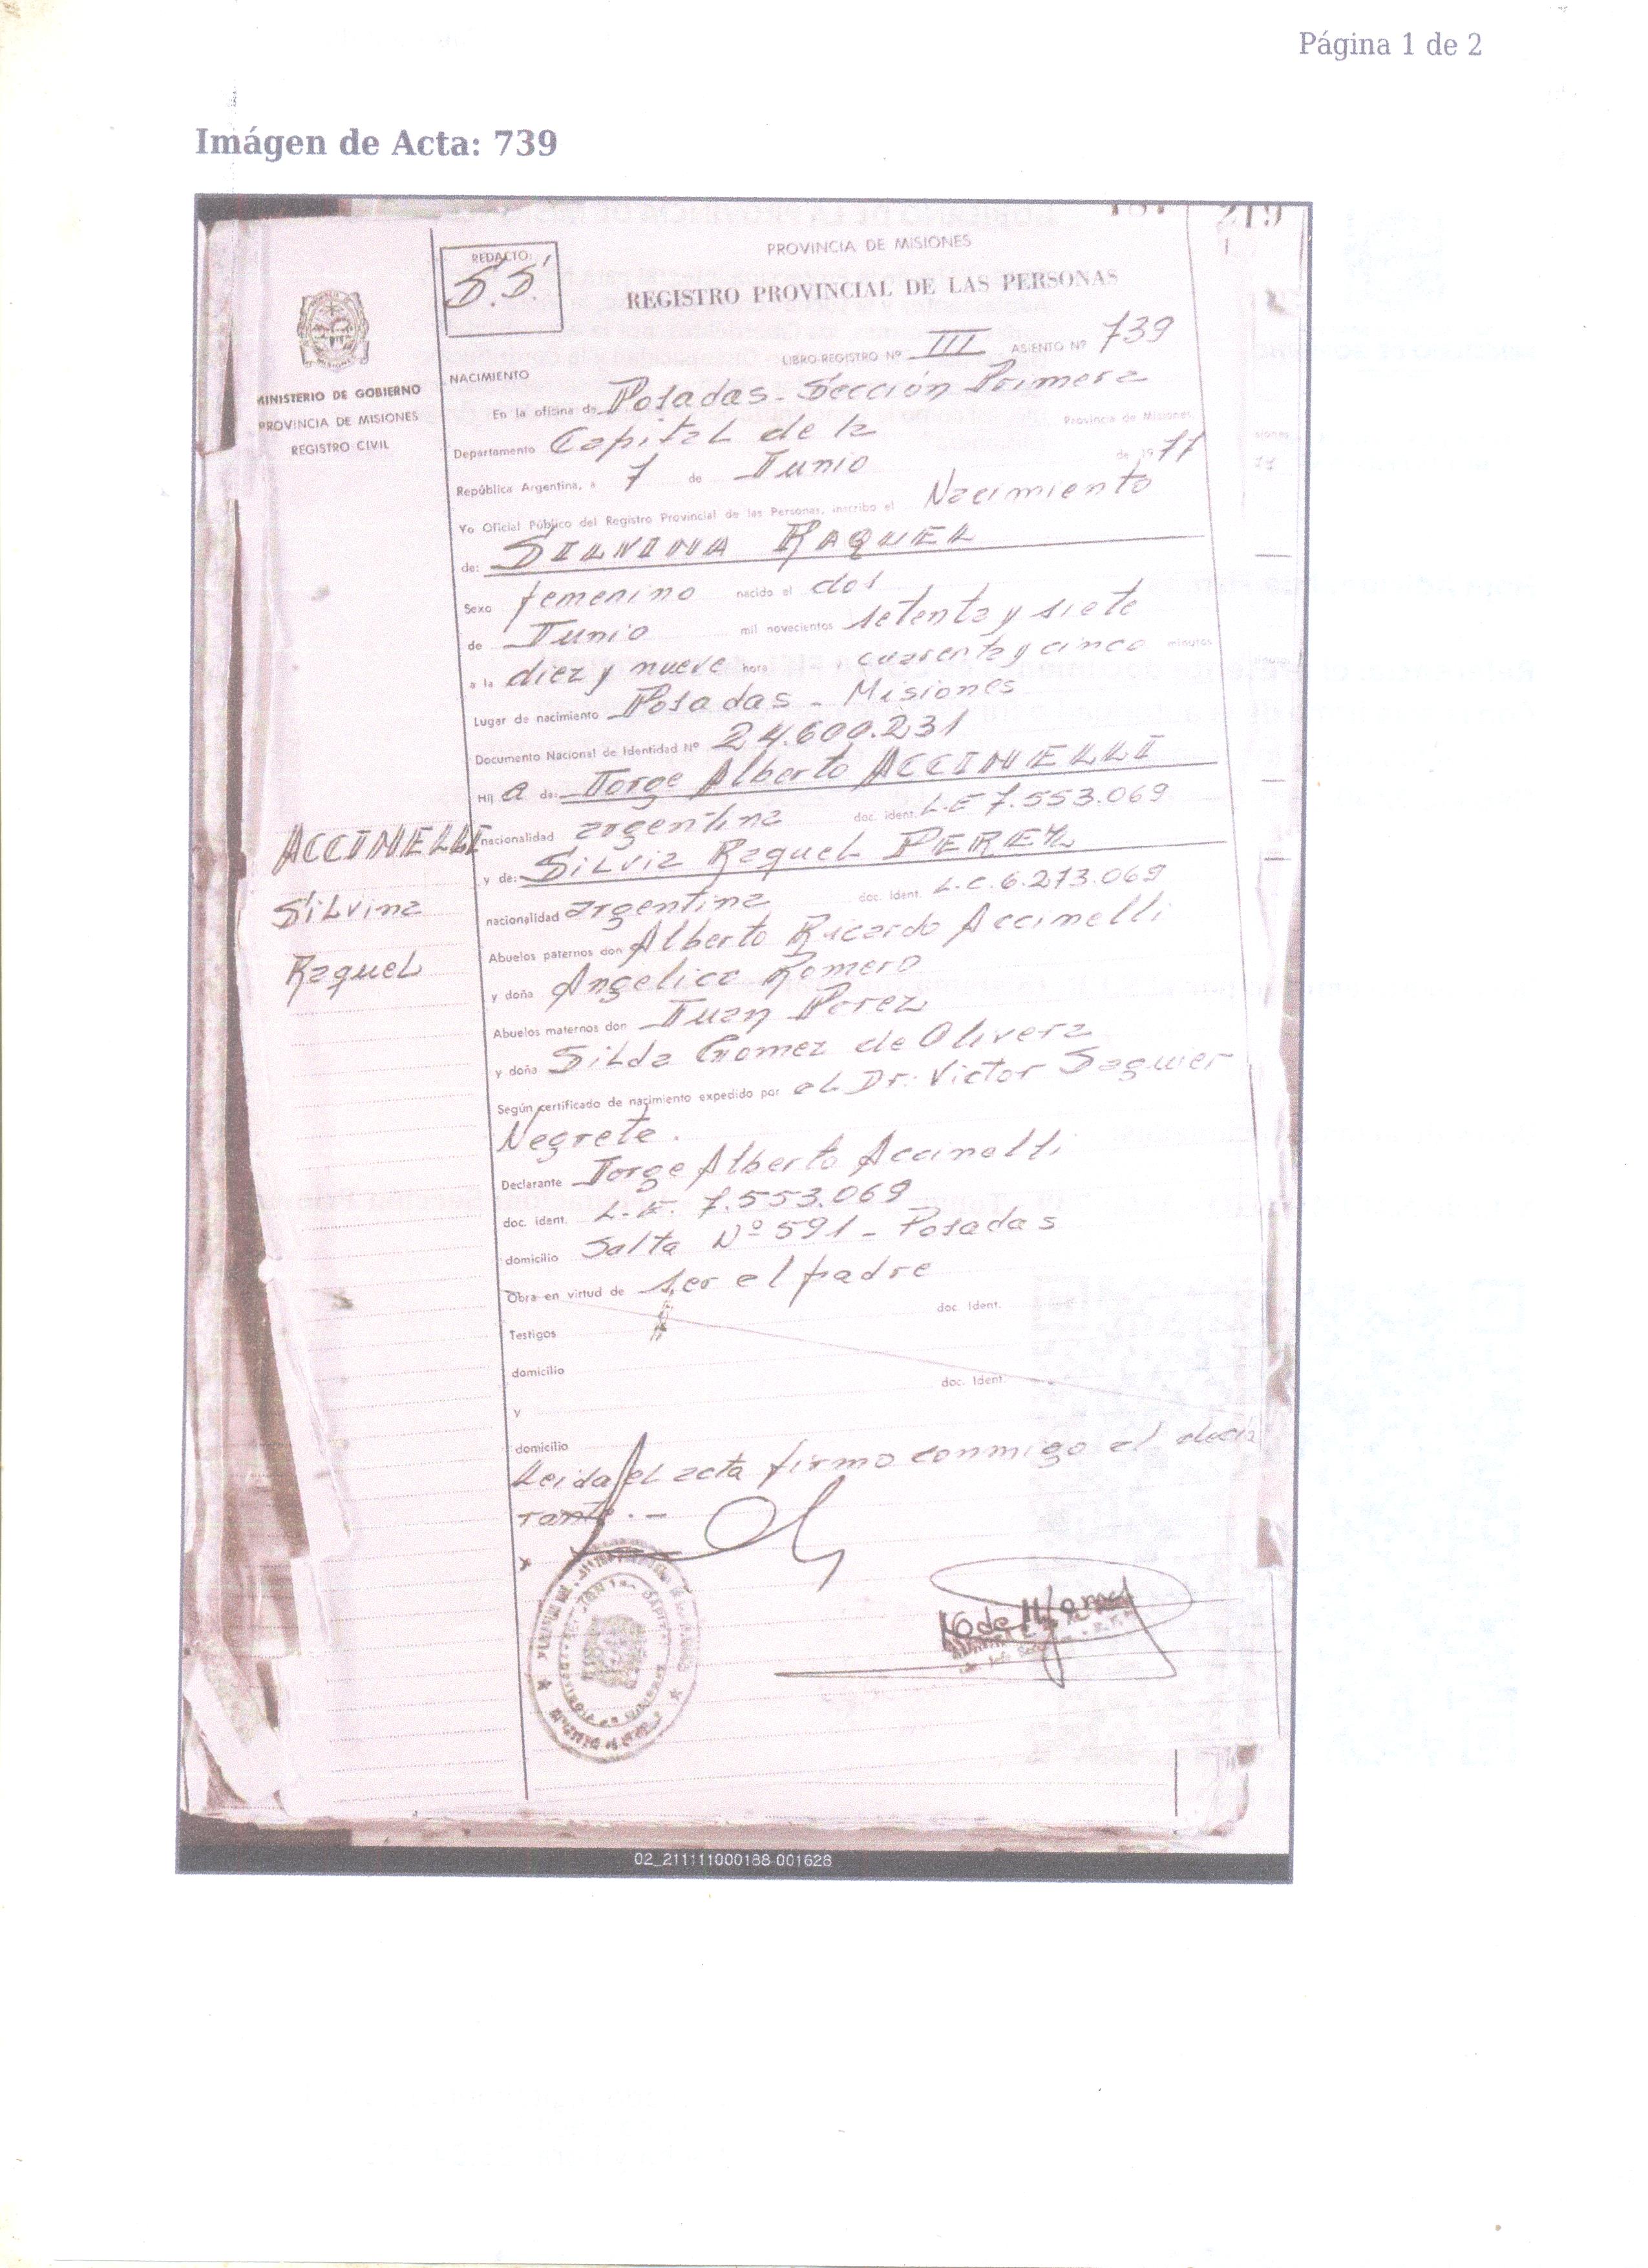 Página 1 de 2
Imágen de Acta: 739
219
REDACTO:
S.S.
PROVINCIA DE MISIONES
REGISTRO PROVINCIAL DE LAS PERSONAS
LIBRO-REGISTRO Nº III ASIENTO Nº 739
MINISTERIO DE GOBIERNO
PROVINCIA DE MISIONES
REGISTRO CIVIL
NACIMIENTO
En la oficina de Posadas - Sección Primera
Departamento Capital de la Provincia de Misiones,
República Argentina, a 7 de Junio de 1977
Yo Oficial Público del Registro Provincial de las Personas, inscribo el Nacimiento
de: SILVINA RAQUEL
Sexo femenino nacido el dos
de Junio mil novecientos setenta y siete
a la diez y nueve hora y cuarenta y cinco minutos
Lugar de nacimiento Posadas - Misiones
Documento Nacional de Identidad Nº 24.600.231
Hij a de: Jorge Alberto ACCINELLI
nacionalidad argentina doc. ident. L.E 7.553.069
y de: Silvia Raquel PEREZ
nacionalidad argentina doc. ident. L.C. 6.273.069
ACCINELLI
Silvina
Raquel
Abuelos paternos don Alberto Ricardo Accinelli
y doña Angelica Romero
Abuelos maternos don Juan Perez
y doña Silda Gomez de Olivera
Según certificado de nacimiento expedido por el Dr. Victor Saguier
Negrete.
Declarante Jorge Alberto Accinelli
doc. ident. L.E. 7.553.069
domicilio Salta Nº 591 - Posadas
Obra en virtud de ser el padre
Testigos doc. Ident.
domicilio
y doc. Ident.
domicilio
Leida el acta firmo conmigo el decla
rante. -
02_211111000188-001628